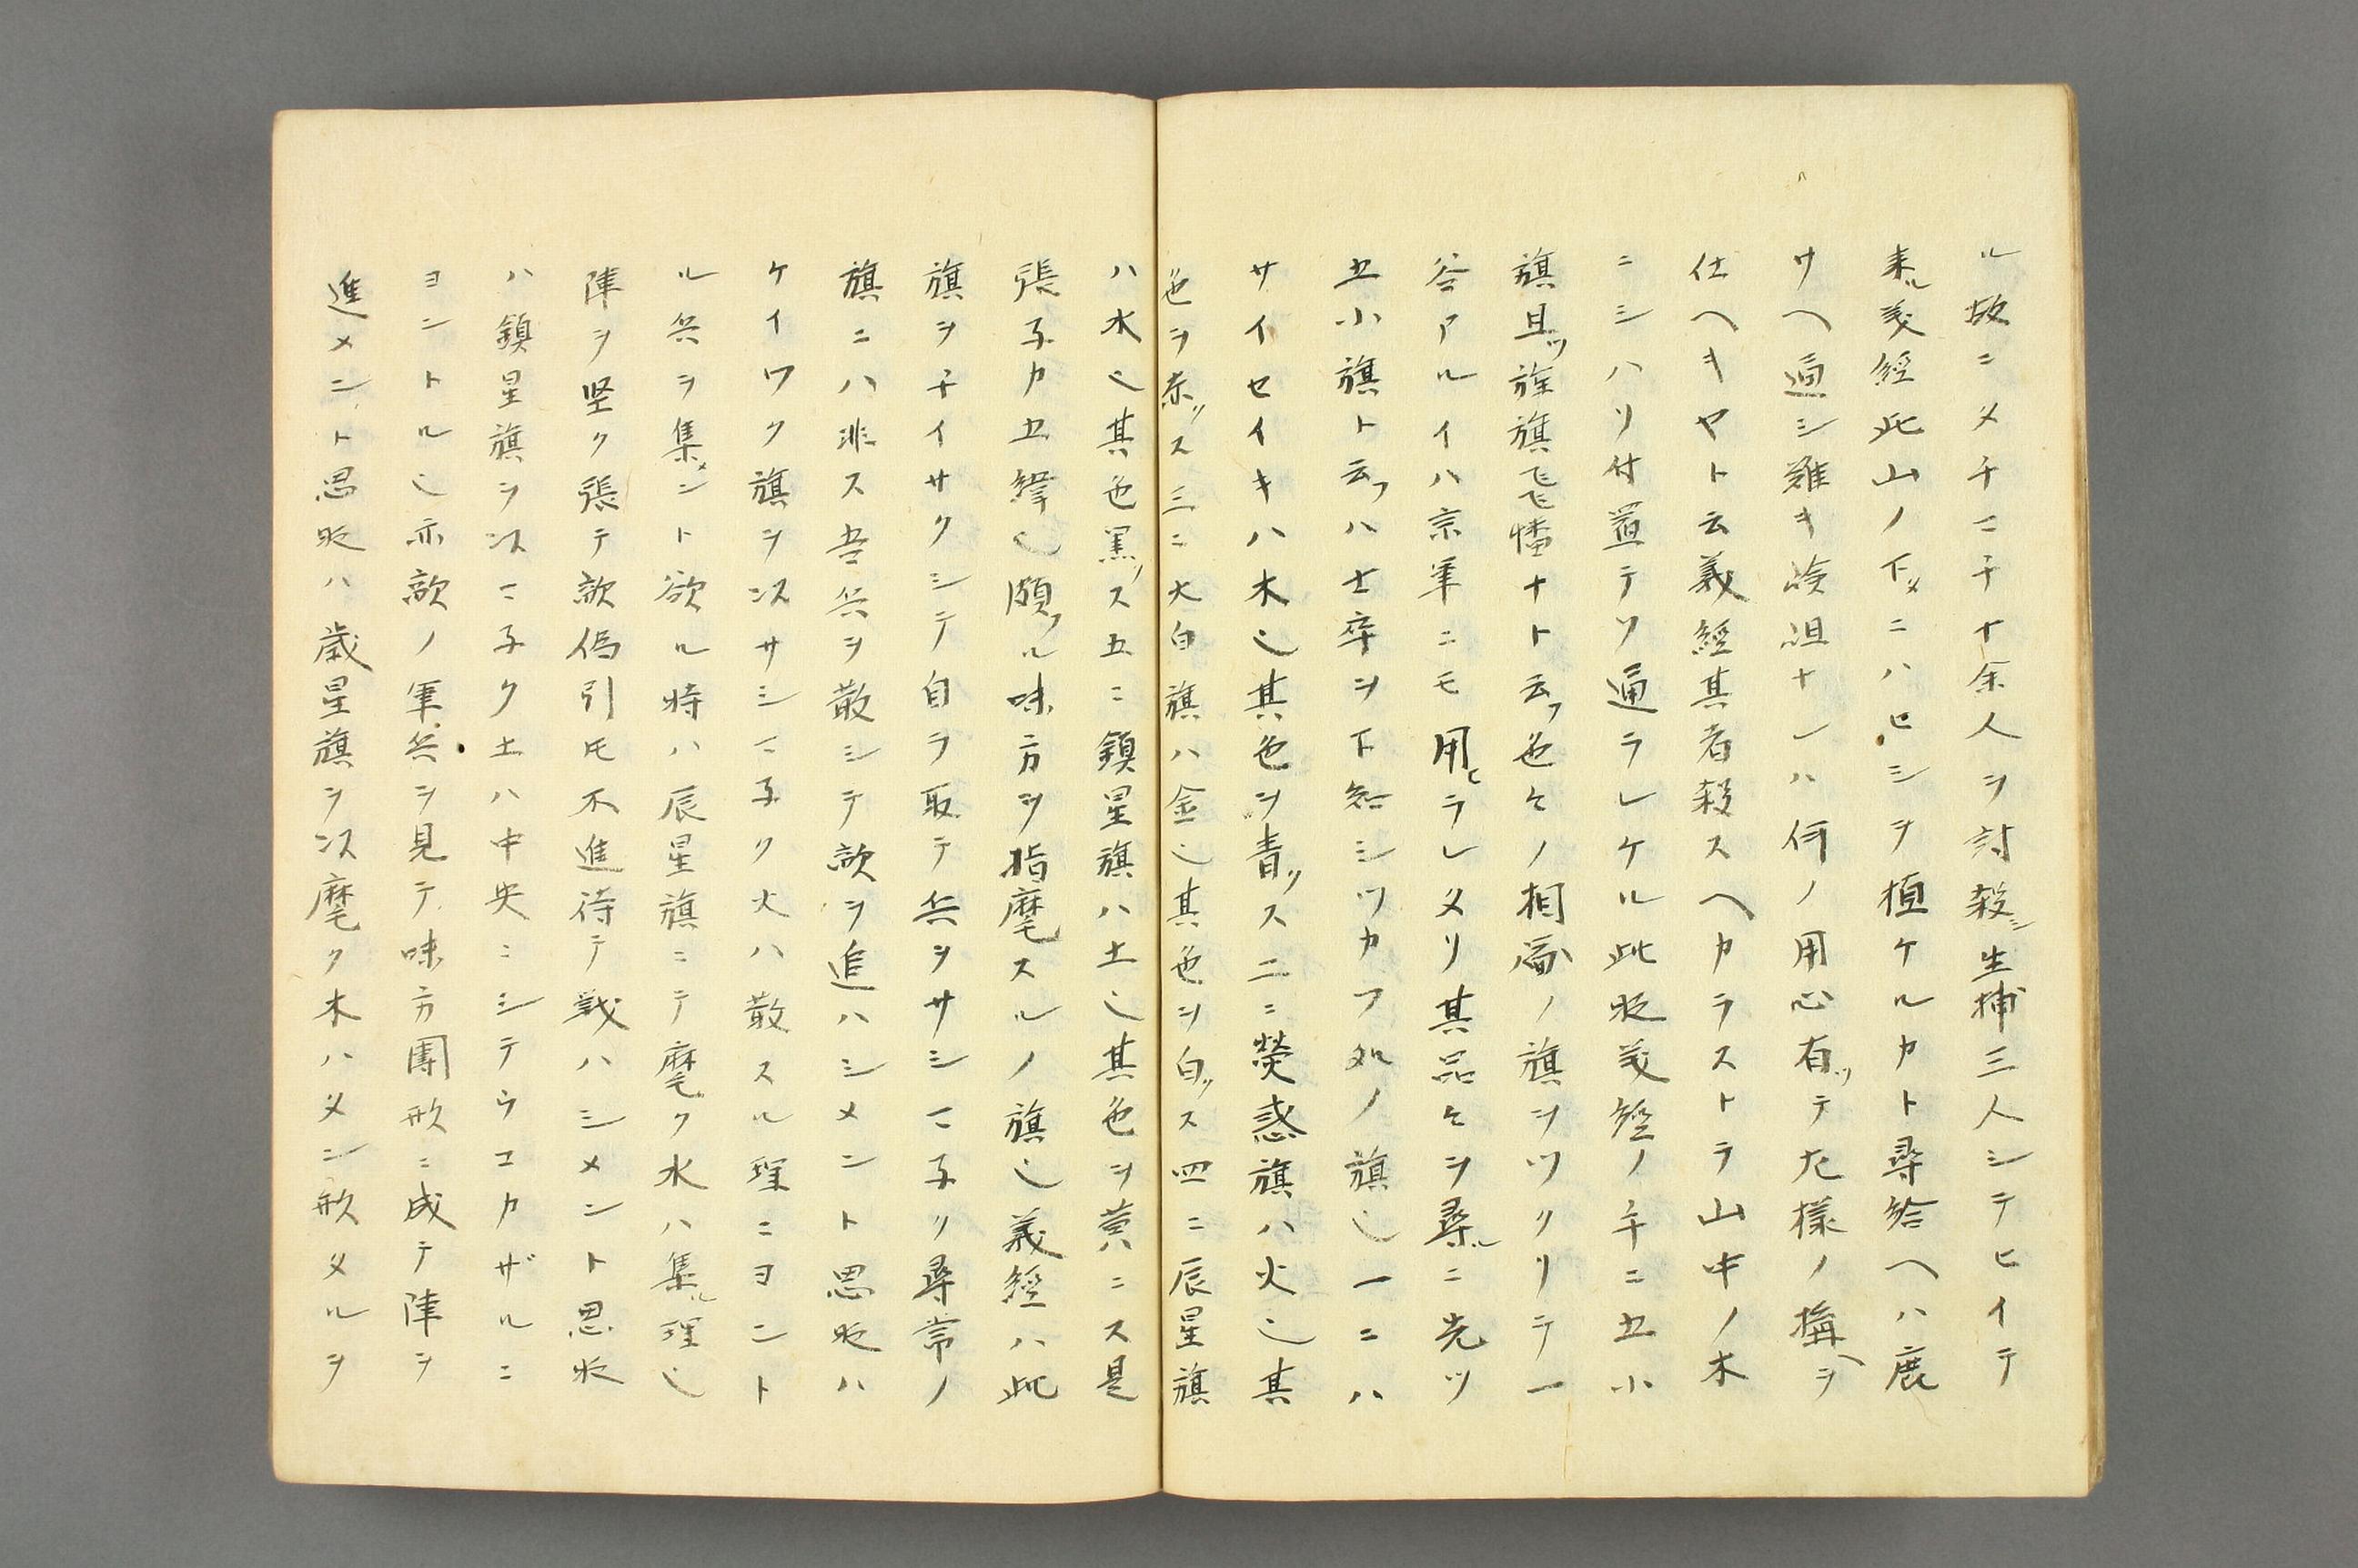 ル故ニメチニ千十余人ヲ討殺シ生捕三人シテヒイテ
来ル義經此山ノ下メニハヒシヲ植ケルカト尋給ヘハ鹿
サヘ通シ難キ嶮岨ナレハ何ノ用心有ツテ左様ノ構ヘヲ
仕ヘキヤト云義經其者殺スヘカラストテ山中ノ木
ニシハリ付置テソ通ラレケル此昵義經ノ手ニ五小
旗且ツ旌旗飛幡ナト云フ色々ノ相圖ノ旗ヲツクリテ一
谷アルイハ京軍ニモ用ヒラレメリ其品々ヲ尋ルニ先ツ
五小旗ト云フハ士卒ヲ下知シツカフ処ノ旗也一ニハ
サイセイキハ木也其色ヲ青ツス二ニ熒惑旗ハ火也其
色ヲ赤ツス三ニ大白旗ハ金也其色ヲ白ツス四ニ辰星旗
ハ水也其色黒ツス五ニ鎮星旗ハ土也其色ヲ黄ニス是
張子カ五緯也頗フル味方ヲ指麾スルノ旗也義經ハ此
旗ヲチイサクシテ自ラ取テ兵ヲサシマ子リ尋常ノ
旗ニハ非ス吾兵ヲ散シテ敵ヲ追ハシメント思昵ハ
ケイワク旗ヲ以サシマ子ク火ハ散スル理ニヨント
ル兵ヲ集メント欲ル時ハ辰星旗ニテ麾ク水ハ集ル理也
陣ヲ堅ク張テ敵偽引モ不進待テ戦ハシメント思昵
ハ鎮星旗ヲ以マ子ク土ハ中央ニシテウコカザルニ
ヨントル也亦敵ノ軍兵ヲ見テ味方團形ニ成テ陣ヲ
進メント思昵ハ歳星旗ヲ以麾ク木ハメン形メルヲ